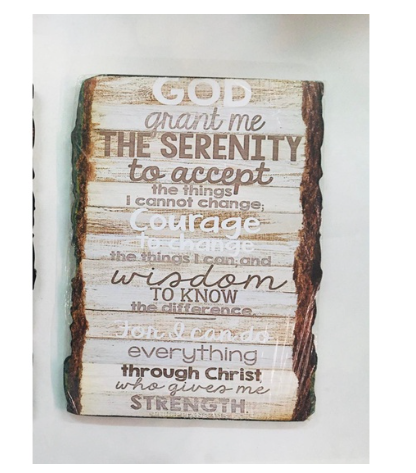 GOD
grant me
THE SERENITY
to accept
the things
I cannot change,
Courage
to change
the things I can, and
wisdom
TO KNOW
the difference.
for I can do
everything
through Christ
who gives me
STRENGTH.